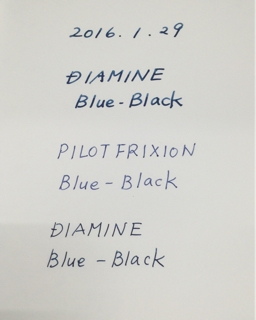 2016. 1. 29
DIAMINE
Blue-Black
PILOT FRIXION
Blue-Black
DIAMINE
Blue-Black